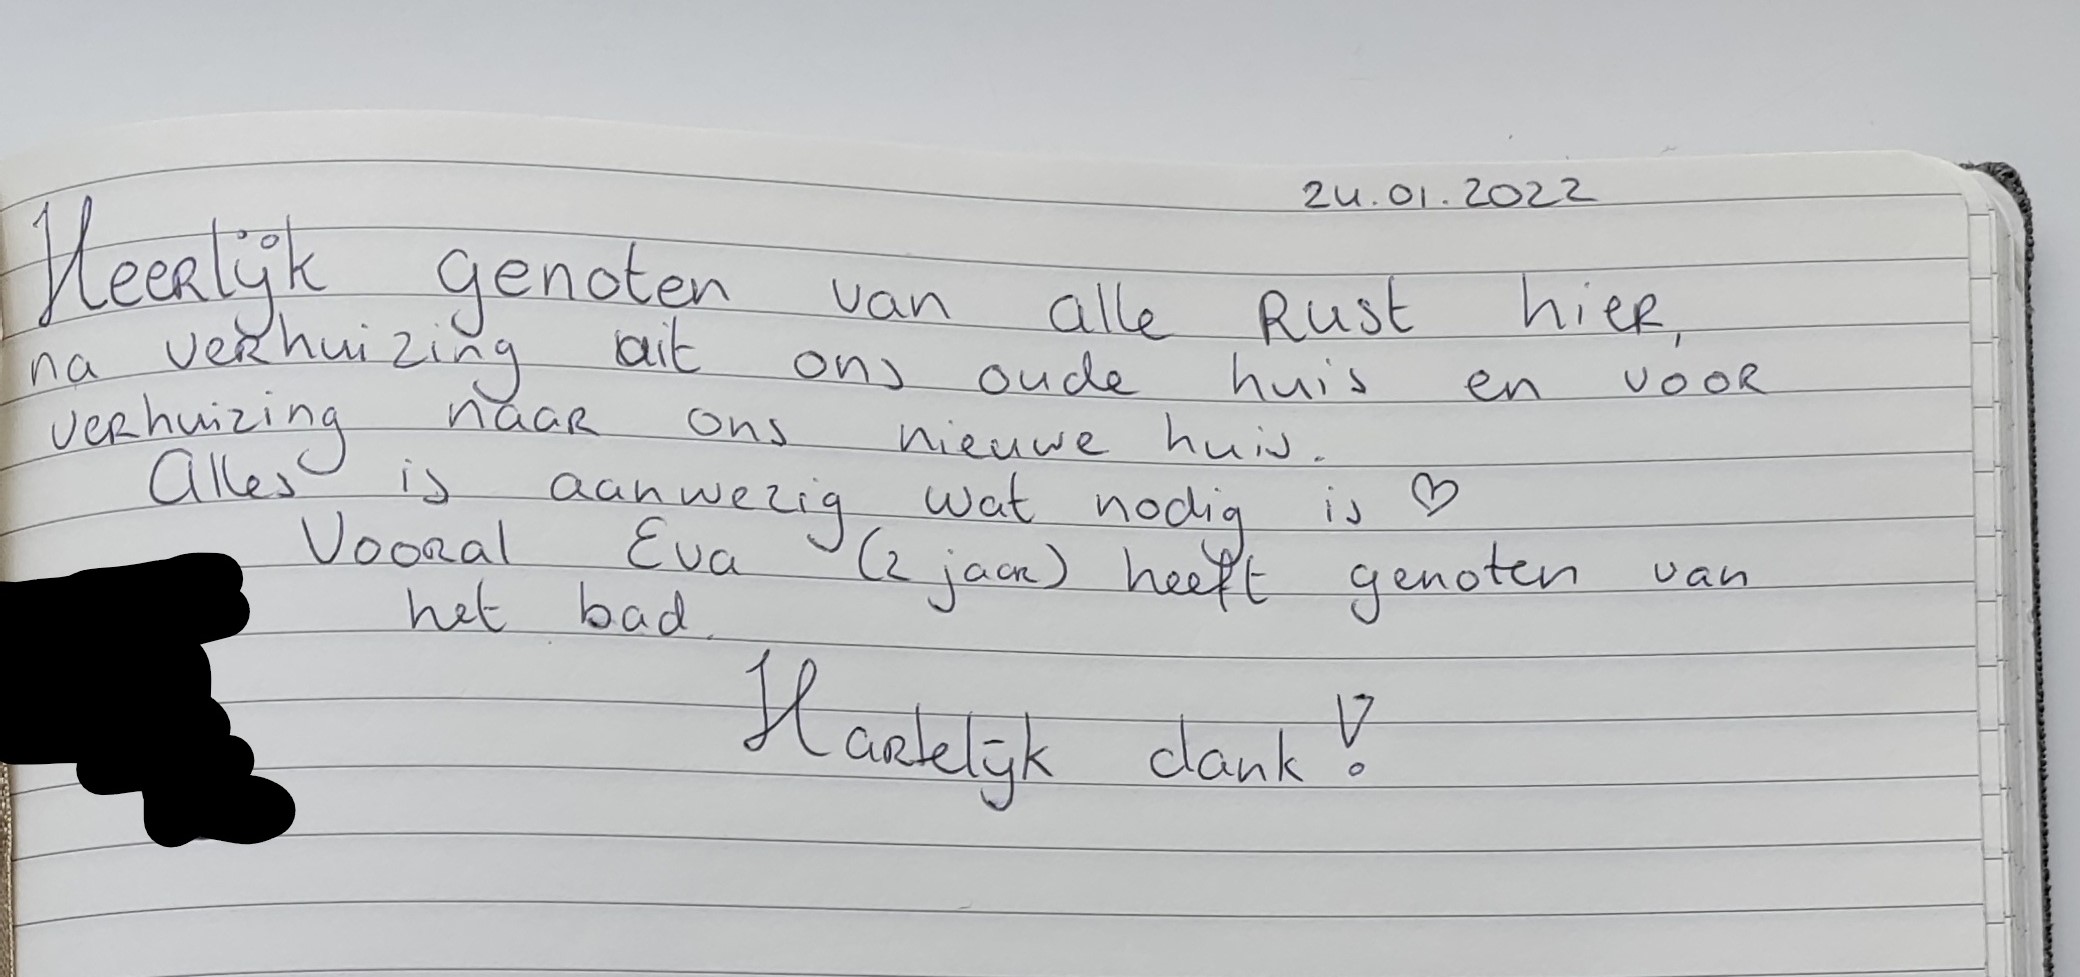 24.01.2022
Heerlijk genoten van alle Rust hier,
na verhuizing uit ons oude huis en voor
verhuizing naar ons nieuwe huis.
Alles is aanwezig wat nodig is ♡
Vooral Eva (2 jaar) heeft genoten van
het bad.
Hartelijk dank!